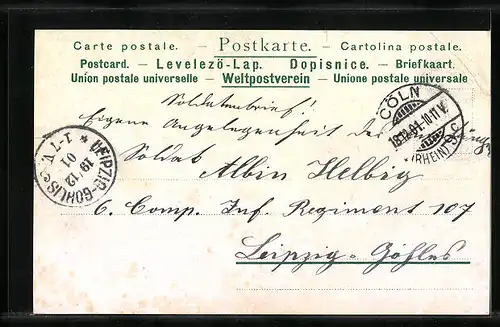 Carte postale. — Postkarte. — Cartolina postale.
Postcard. — Levelező-Lap. Dopisnice. — Briefkaart.
Union postale universelle — Weltpostverein — Unione postale universale
Soldatenbrief!
Eigene Angelegenheit des Empfängers
Soldat Albin Helbig
6. Comp. Inf. Regiment 107
Leipzig-Gohlis
CÖLN
18.12.01.10-11V.
(RHEIN) 9c
LEIPZIG-GOHLIS
19 12
01
1-7 V.